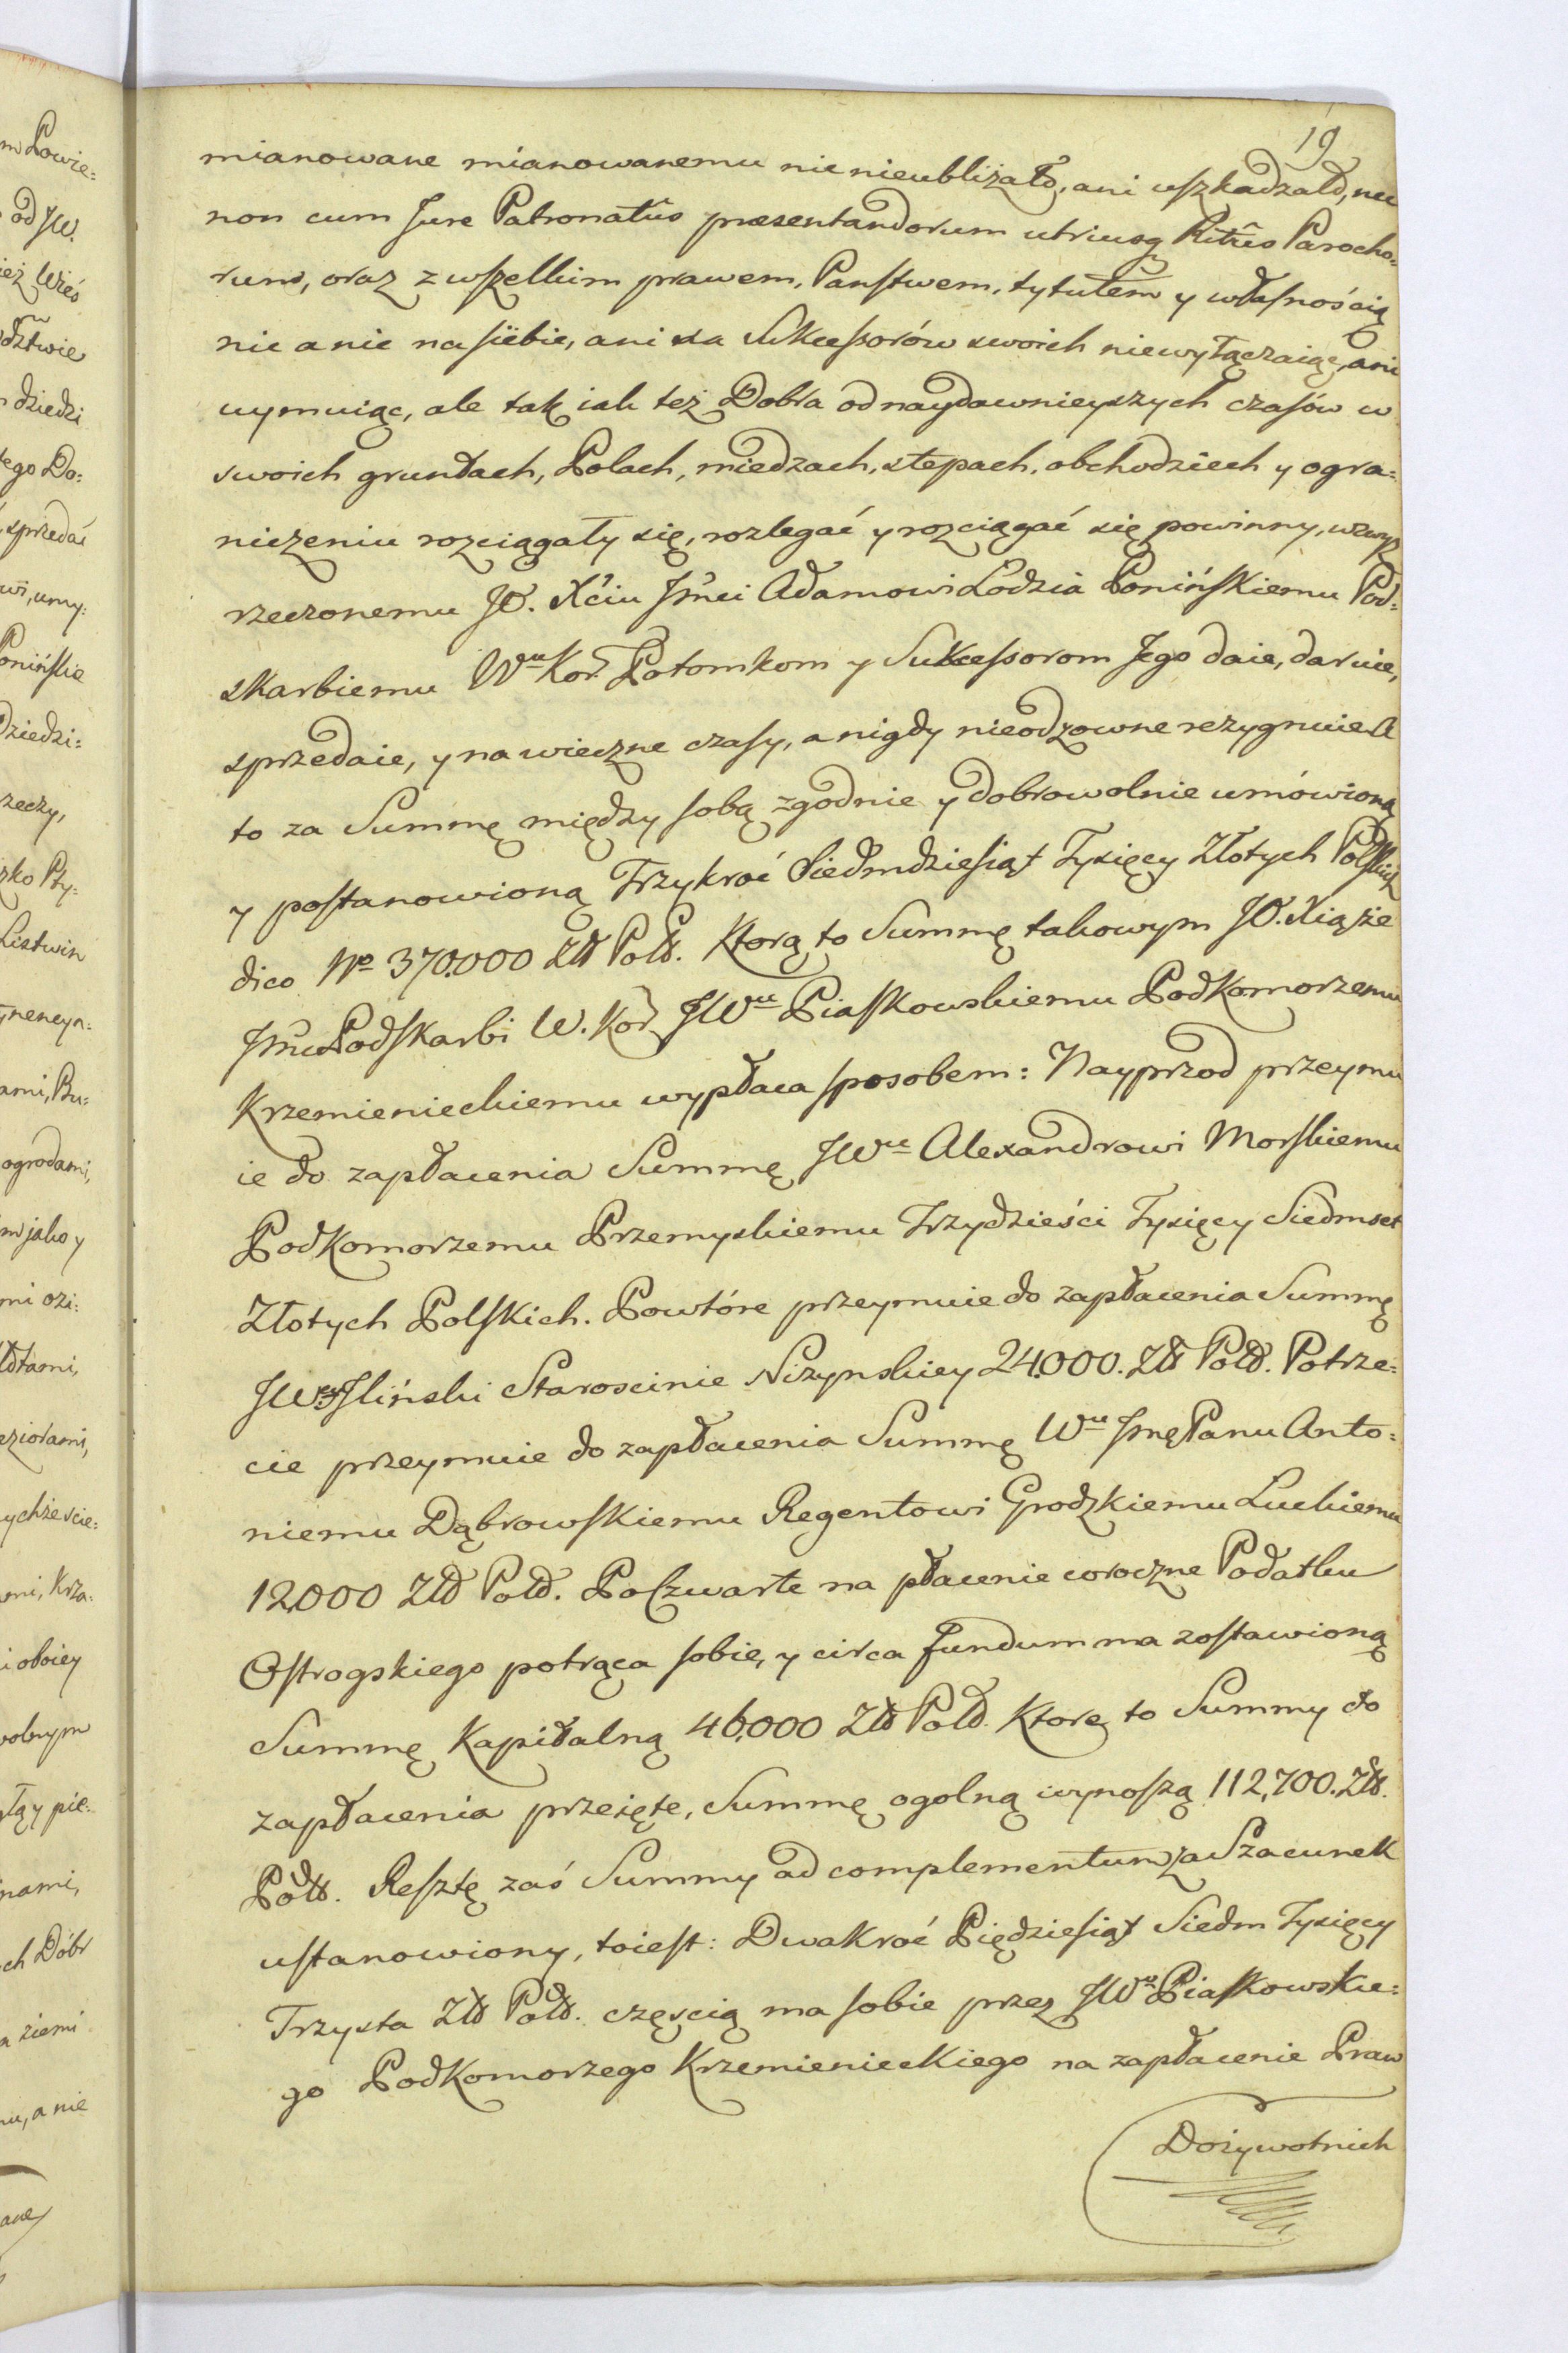 19
mianowane mianowanemu nie nieubliżało, ani uszkadzało, nec
non cum Jure Patronatûs praesentandorum utriusq Ritûs Parocho:
rum, oraz z wszelkim prawem, Panstwem, tytułem y własnością
nic a nic na siebie, ani na Sukcessorów swoich niewyłączaiąc, ani
uymuiąc, ale tak iak też Dobra od naydawnieyszych czasów w
swoich gruntach, Polach, miedzach, stepach, obchodziech y ogra:
niczeniu rozciągały się, rozlegać y rozciągać się powinny, wzwyż
rzeczonemu JO. Xciu Jmci Adamowi Lodzia Ponińskiemu Pod:
skarbiemu Wu Kor. Potomkom y Sukcessorom Jego daie, daruie,
sprzedaie, y na wieczne czasy, a nigdy nieodzowne rezygnuie A
to za Summę między sobą zgodnie y dobrowolnie umówioną
y postanowioną Trzykroć Siedmdziesiąt Tysięcy Złotych Polskich
dico No 370.000 Złł Poll. Ktorą to Summę takowym JO. Xiąże
Jmć Podskarbi W. Kor. JWu Piaskowskiemu PodKomorzemu
Krzemienieckiemu wypłaca sposobem: Nayprzod przeymu
ie do zapłacenia Summę JWu Alexandrowi Morskiemu
PodKomorzemu Przemyskiemu Trzydzieści Tysięcy Siedmset
Złotych Polskich. Powtóre przeymuie do zapłacenia Summę
JWey Jliński Staroscinie Nizynskiey 24.000. Złł Poll. Potrze:
cie przeymuie do zapłacenia Summę Wu Jmę Panu Anto:
niemu Dąbrowskiemu Regentowi Grodzkiemu Luckiemu
12,000 Złł Poll. Poczwarte na płacenie coroczne Podatku
Ostrogskiego potrąca sobie, y circa fundum ma zostawioną
Summę Kapitalną 46,000 Złł Poll. Ktore to Summy do
zapłacenia przeięte, Summę ogolną wynoszą 112,700. Złł.
Poll. Resztę zaś Summy ad complementum za Szacunek
ustanowiony, toiest: Dwakroć Pięćdziesiąt Siedm Tysięcy
Trzysta Złł Poll. częścią ma sobie przez JWo Piaskowskie:
go PodKomorzego Krzemienieckiego na zapłacenie Praw
Dożywotnich